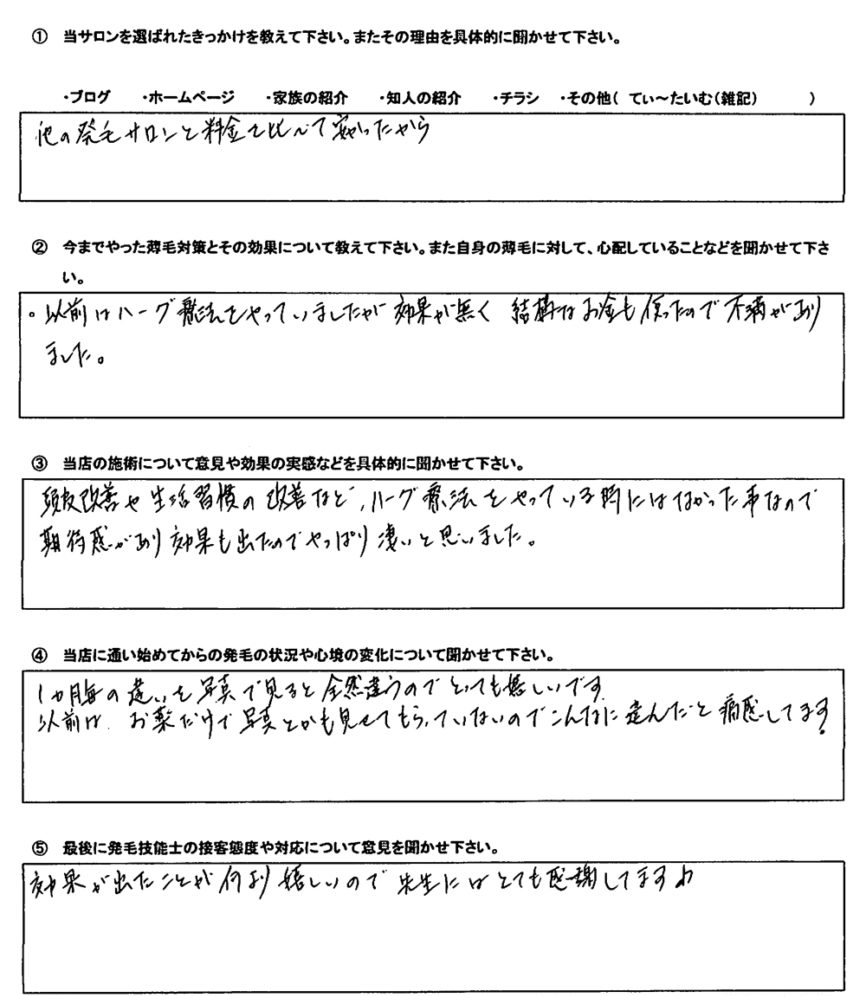 ① 当サロンを選ばれたきっかけを教えて下さい。またその理由を具体的に聞かせて下さい。
・ブログ ・ホームページ ・家族の紹介 ・知人の紹介 ・チラシ ・その他( てぃ～たいむ(雑記) )
他の発毛サロンと料金を比べて安かったから
② 今までやった薄毛対策とその効果について教えて下さい。また自身の薄毛に対して、心配していることなどを聞かせて下さ
い。
。以前はハーグ療法をやっていましたが効果が無く 結構なお金も使ったので不満があり
ました。
③ 当店の施術について意見や効果の実感などを具体的に聞かせて下さい。
頭皮改善や生活習慣の改善など、ハーグ療法をやっている時にはなかった事なので
期待感があり効果も出たのでやっぱり凄いと思いました。
④ 当店に通い始めてからの発毛の状況や心境の変化について聞かせて下さい。
1ヵ月毎の違いを写真で見ると全然違うのでとっても嬉しいです
以前は、お薬だけで写真とかも見せてもらっていないのでこんなに違んだと痛感してます!
⑤ 最後に発毛技能士の接客態度や対応について意見を聞かせ下さい。
効果が出たことが何より嬉しいので先生にはとても感謝してます